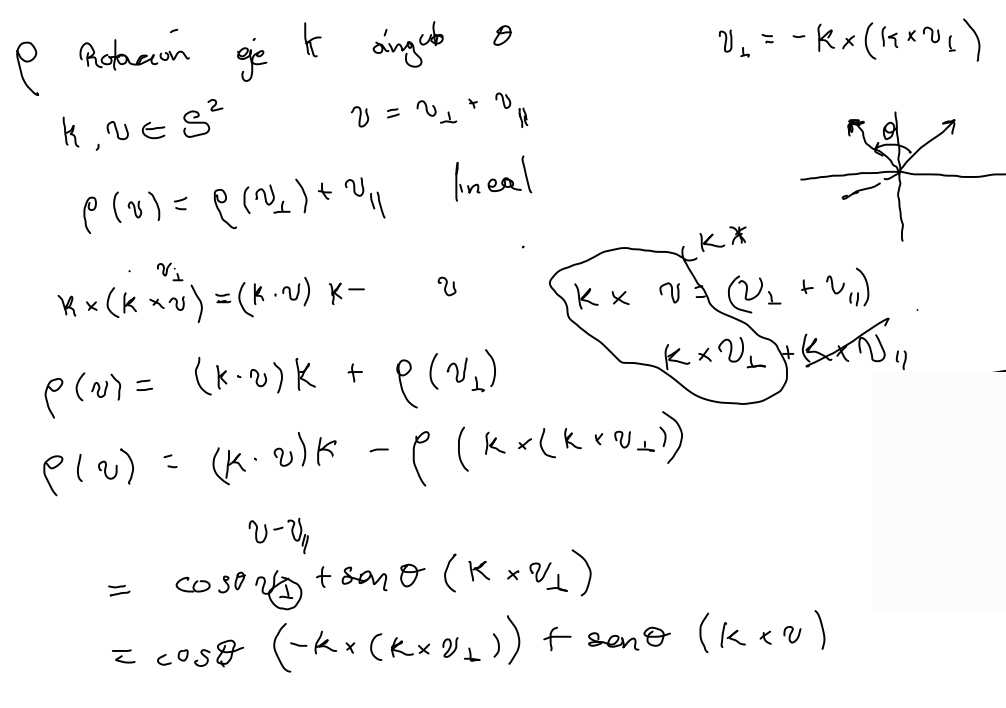 ρ Rotación eje k ángulo θ
v⊥ = -k×(k×v⊥)
k, v ∈ S²
v = v⊥ + v∥
θ
ρ(v) = ρ(v⊥) + v∥ lineal
k×
v⊥
k×(k×v) = (k·v) k - v
k × v = (v⊥ + v∥)
k×v⊥ + k×v∥
ρ(v) = (k·v)k + ρ(v⊥)
ρ(v) = (k·v)k - ρ(k×(k×v⊥))
v-v∥
= cosθ v⊥ + senθ (k×v⊥)
= cosθ (-k×(k×v⊥)) + senθ (k×v)